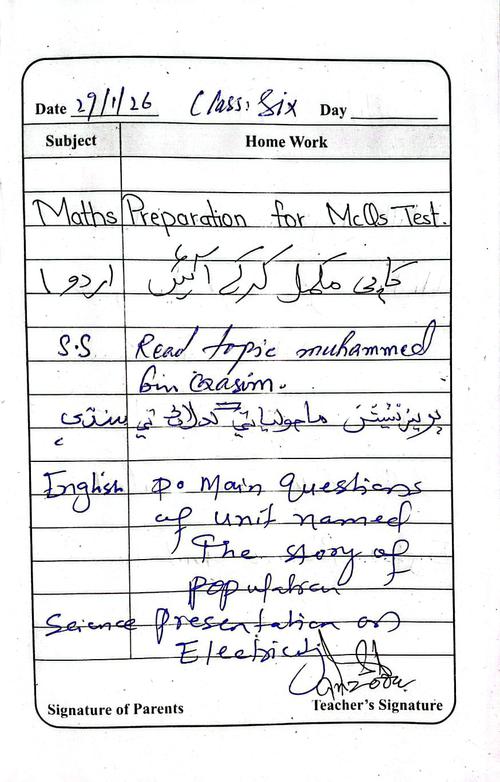 Date 29/1/26 Class: Six Day
Subject Home Work
Maths Preparation for McQs Test.
اردو ا کاپی مکمل کرکے آئیں
S.S Read topic muhammed
bin Qasim.
سنڌي پريزنٽيشن ماحولياتي گدلاڻ تي
English Q. Main Questions
of unit named
The story of
population
Science Presentation on
Electricity
Signature of Parents Teacher's Signature